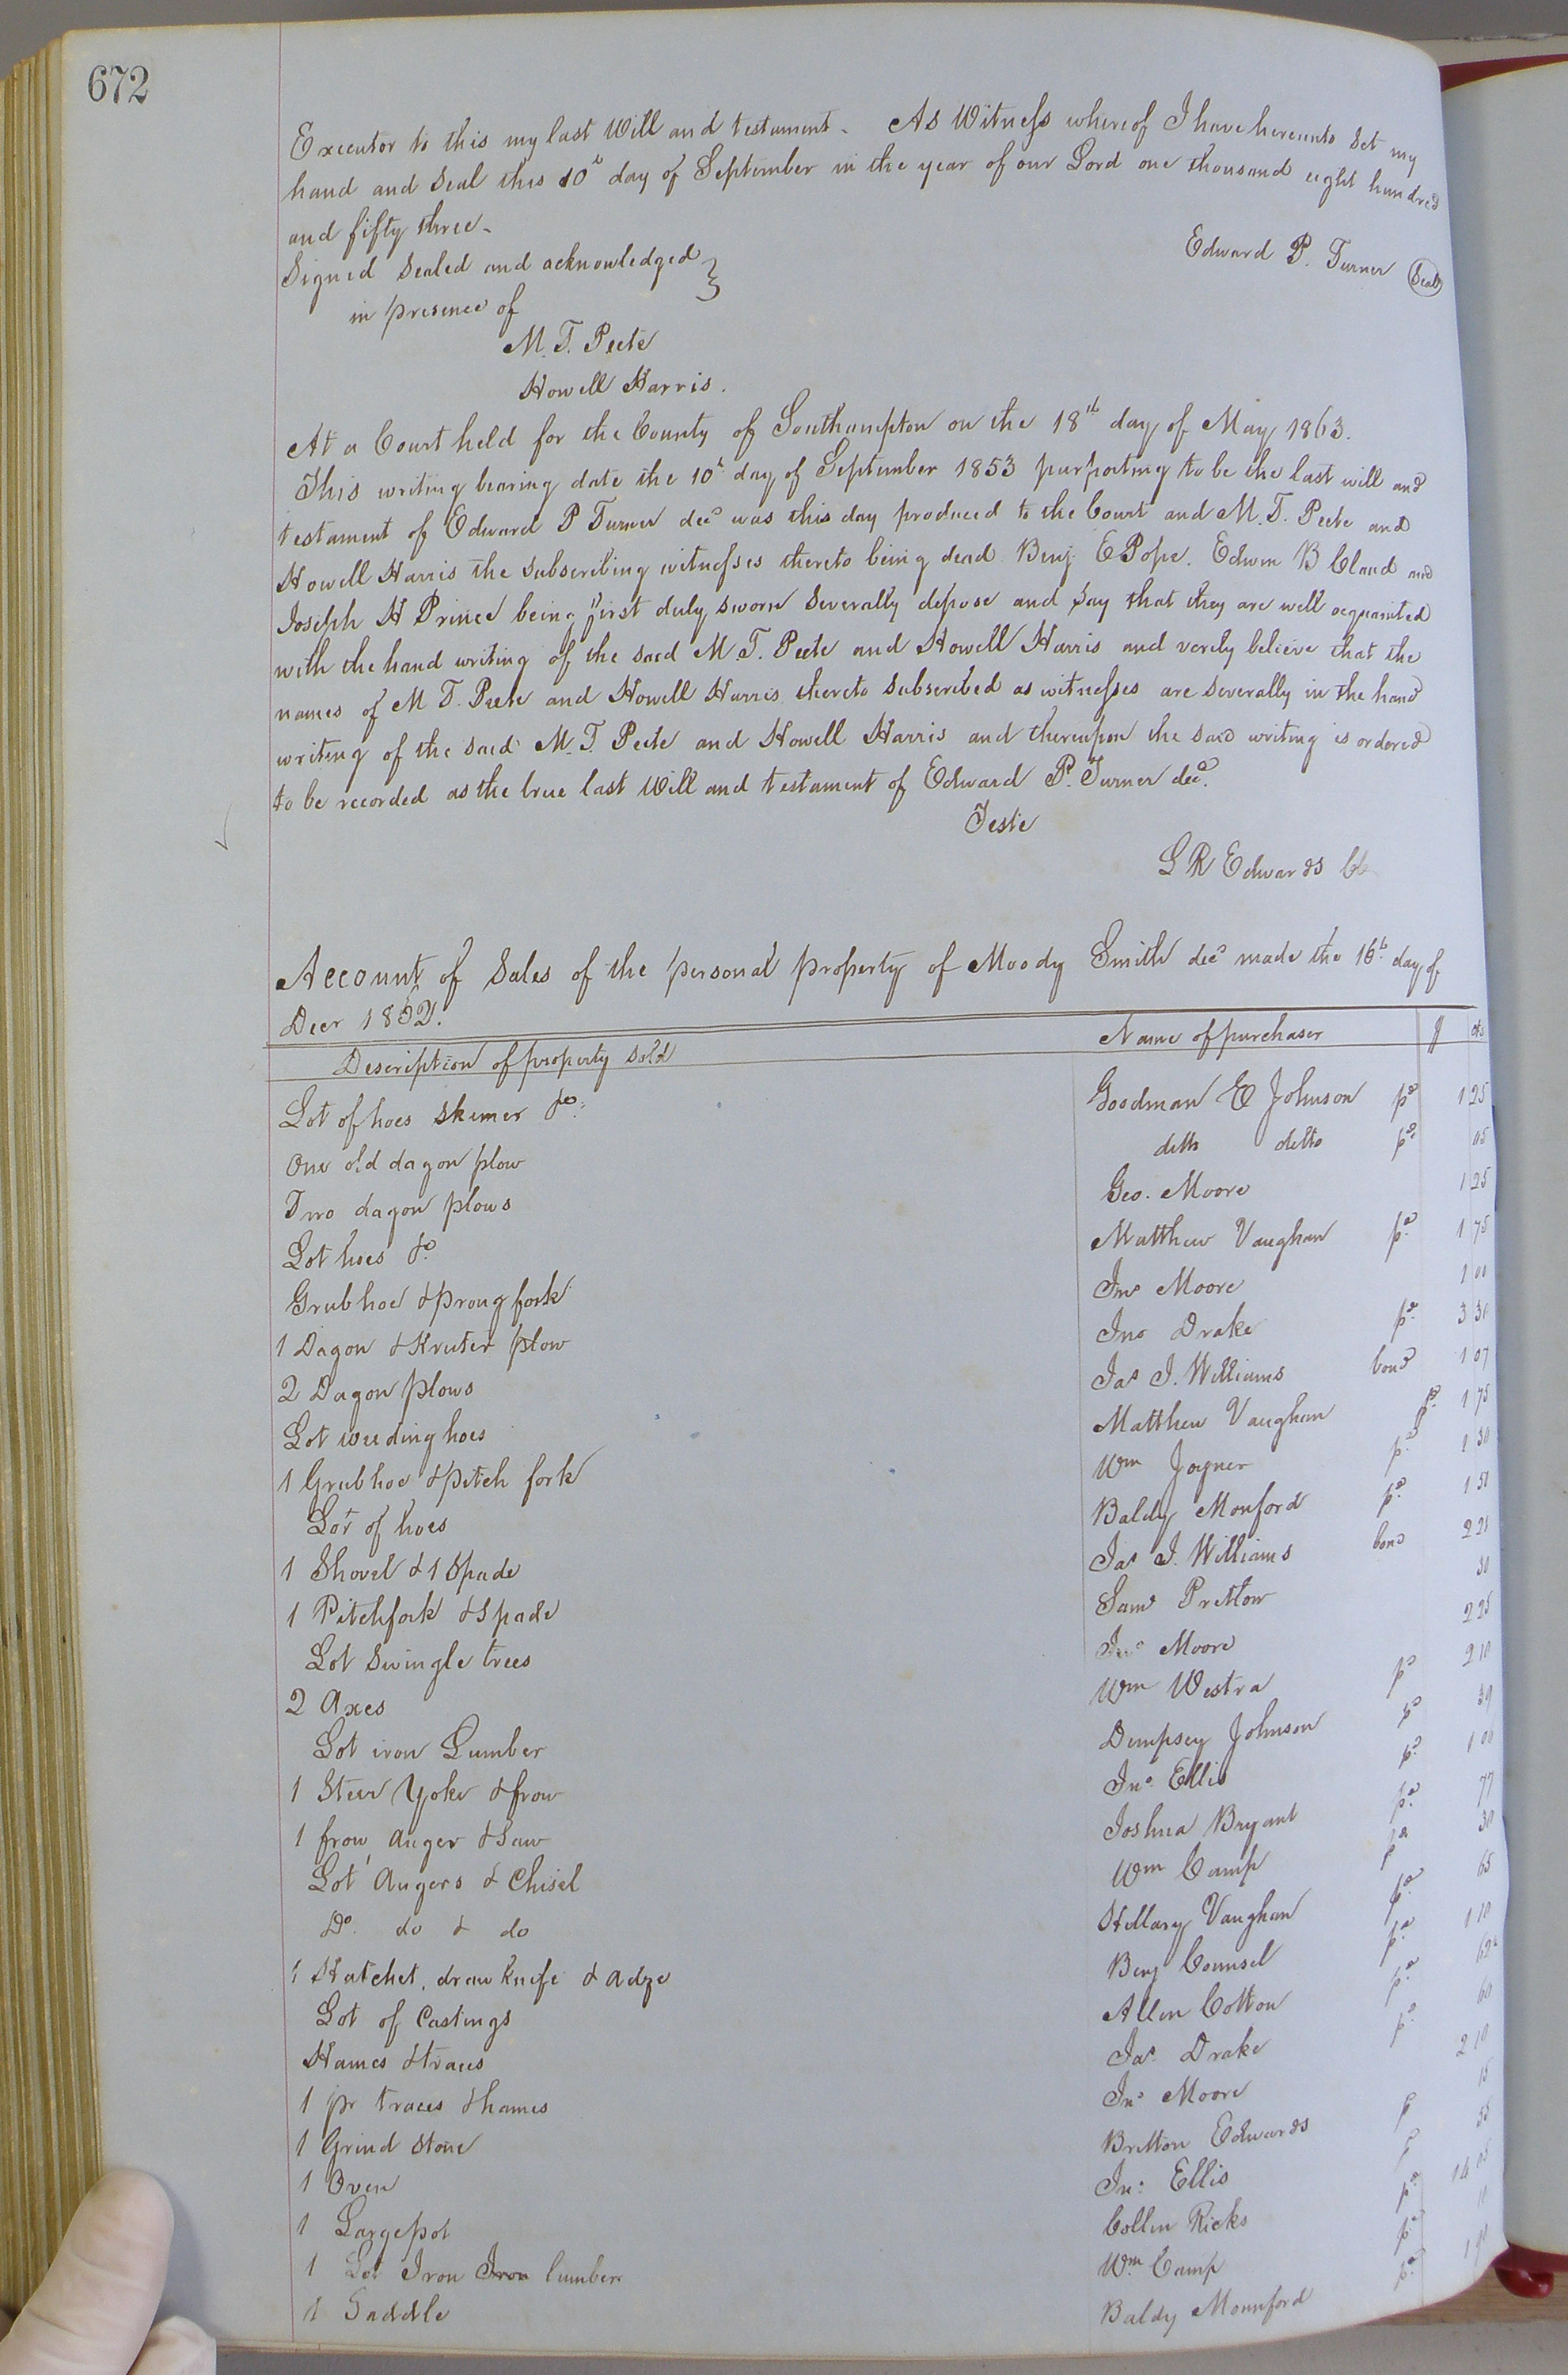 672
Executor to this my last Will and testament. As Witness whereof I have hereunto Set my
hand and Seal this 10th day of September in the year of our Lord one thousand eight hundred
and fifty three.
Edward P. Turner Seal
Signed Sealed and acknowledged
in presence of
M. T. Peete
Howell Harris.
At a Court held for the County of Southampton on the 18th day of May 1863.
This writing bearing date the 10th day of September 1853 purporting to be the last will and
testament of Edward P Turner decd was this day produced to the Court and M. T. Peete and
Howell Harris the Subscribing witnesses thereto being dead Benj. E Pope. Edwin B Claud and
Joseph H Prince being first duly sworn Severally depose and Say that they are well acquainted
with the hand writing of the said M. T. Peete and Howell Harris and verily believe that the
names of M T. Peete and Howell Harris thereto Subscribed as witnesses are severally in the hand
writing of the said M. T. Peete and Howell Harris and thereupon the said writing is ordered
to be recorded as the true last Will and testament of Edward P. Turner decd.
Teste
L R Edwards Ck
Account of Sales of the personal property of Moody Smith decd made the 16th day of
Decr 1852.
Description of property sold Name of purchaser $ cts
Lot of hoes skimer &c. Goodman E Johnson pd 1 25
One old dagon plow ditto ditto pd 05
Two dagon plows Geo. Moore 1 25
Lot hoes &c Matthew Vaughan pd 1 75
Grubhoe & prong fork Jno Moore 1 00
1 Dagon & Kruter plow Jno Drake pd 3
2 Dagon plows Jas J. Williams bond 1 07
Lot weeding hoes Matthew Vaughan pd 1 75
1 Grubhoe & pitch fork Wm Joyner pd
Lot of hoes Baldy Monford pd 1
1 Shovel & 1 Spade Jas J. Williams bond 2
1 Pitchfork & Spade Saml Pretlow
Lot Swingle trees Jno Moore 2 25
2 Axes Wm Westra pd 2 10
Lot iron Lumber Dempsey Johnson pd 39
1 Steer Yoke & frow Jno Ellis pd 1 00
1 frow, auger & Saw Joshua Bryant pd 77
Lot Augers & Chisel Wm Camp pd 30
Do. do & do Hillary Vaughan pd 65
1 Hatchet, draw knife & adze Benj Counsel pd 1 10
Lot of Castings Allen Cotton pd
Hames & traces Jas Drake pd 60
1 pr traces & hames Jno Moore 2 10
1 Grind stone Britton Edwards p 15
1 Oven Jno Ellis p 55
1 Large pot Collin Ricks pd
1 Lot Iron Iron lumber Wm Camp pd
1 Saddle Baldy Mounford pd